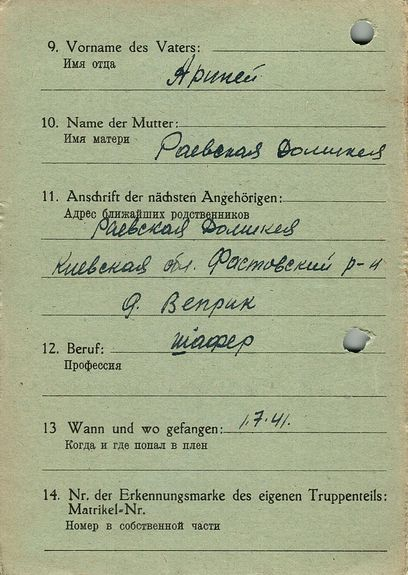 9. Vorname des Vaters:
Имя отца
Ариней
10. Name der Mutter:
Имя матери
Раевская Доликея
11. Anschrift der nächsten Angehörigen:
Адрес ближайших родственников
Раевская Доликея
Киевская обл. Фастовский р-н
д. Веприк
12. Beruf:
шафер
Профессия
13 Wann und wo gefangen: 1.7.41.
Когда и где попал в плен
14. Nr. der Erkennungsmarke des eigenen Truppenteils:
Matrikel-Nr.
Номер в собственной части